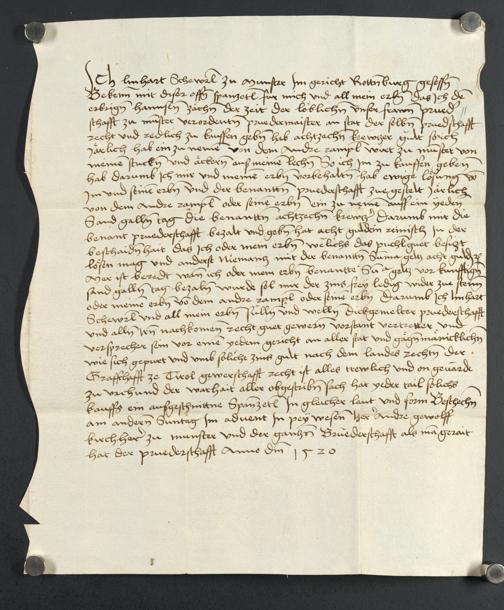 Ich linhart Schewrl zu munster im gericht Rottnburg gesessn
Bekenn mit diser offn spanzetl fur mich und all mein erbn das Ich dem
erbrign hannsen zechn der zeit der loblichn unser frawn prued
schafft zu muster verordenten pruedermaister an stat der selbn pruedschafft
recht und redlich zu kauffen gebn hab achtzechn krewczer gult So ich
järlich hab ein zu nemen von dem Andre rampl wirt zu munster von
meine stuckn und ackern auss meine lechn So ich im zu kauffen geben
hab darumb Ich mir und meine erbn vorbehaltn hab ewige losung von
Im und seine erbn und der benanttn pruederschafft zue gestelt Järlich
von dem Andre rampl oder seine erbn ein zu neme auff ein yeden
Sand gallen tag die benanttn achtzechn krewczer Darumb mir die
benant pruederschafft bezalt und gebn hat acht guldn reinisch In der
beschaidnhait das Ich oder mein erbn welichs das puchlguet besizt
losen mag und anderst Niemancz mit der benantn Suma gelcz acht guldn
Mer ist beredt wan ich oder mein erbn benantte Sua gelcz vor kunfftign
sand gallen tag bezaln wurde sol mir der zins frey ledig wider zue steen
oder meine erbn von dem andre rampl oder seine erbn Darumb Ich linhart
Schewrl und all mein erbn sulln und welln dickgemelter pruederschafft
und alln Irn nachkomen recht guet gewern vorstant vertretter und
versprecher sein vor eine yedem gericht an aller stat und gagn männicklichn
wie sich gepurt und umb solicht zins gult nach dem landes rechtn der
Graffschafft ze Tirol gewerschafft recht ist alles trewlich und on geuarde
Zu urchund der warhait aller obgeschribn sach hat yeder tail solichs
kauffs ein aussgeschnittne Spanzetl In gleicher laut und form Beschechn
am andern Suntag Im advent In pey wesen her Andre gewolff
kirchher zu munster und der ganczn Brüederschafft als man gerait
hat der pruederschafft Anno dm 1520